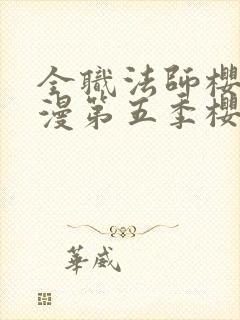 全職法師櫻
漫第五季櫻
華威